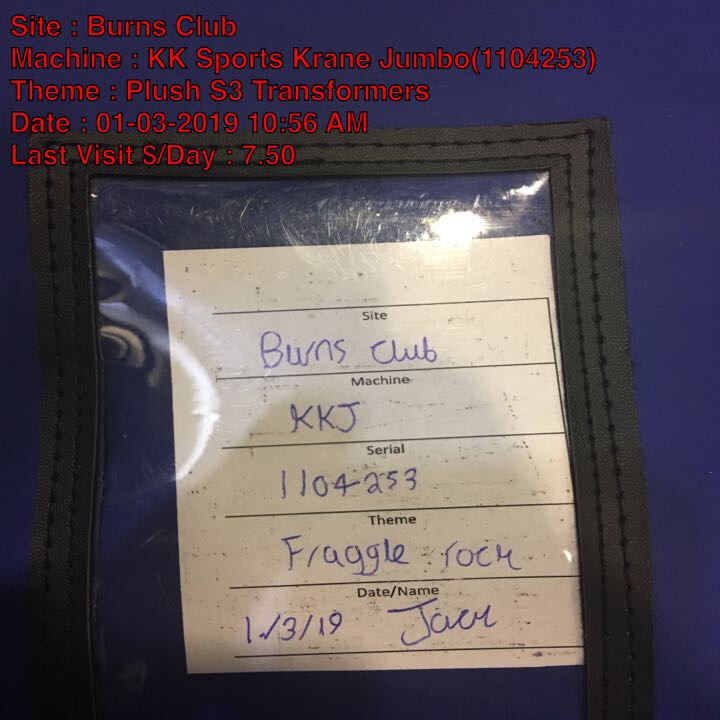 Site : Burns Club
Machine : KK Sports Krane Jumbo(1104253)
Theme : Plush S3 Transformers
Date : 01-03-2019 10:56 AM
Last Visit $/Day : 7.50
Site
Burns club
Machine
KKJ
Serial
1104253
Theme
Fraggle rock
Date/Name
1/3/19 Jack